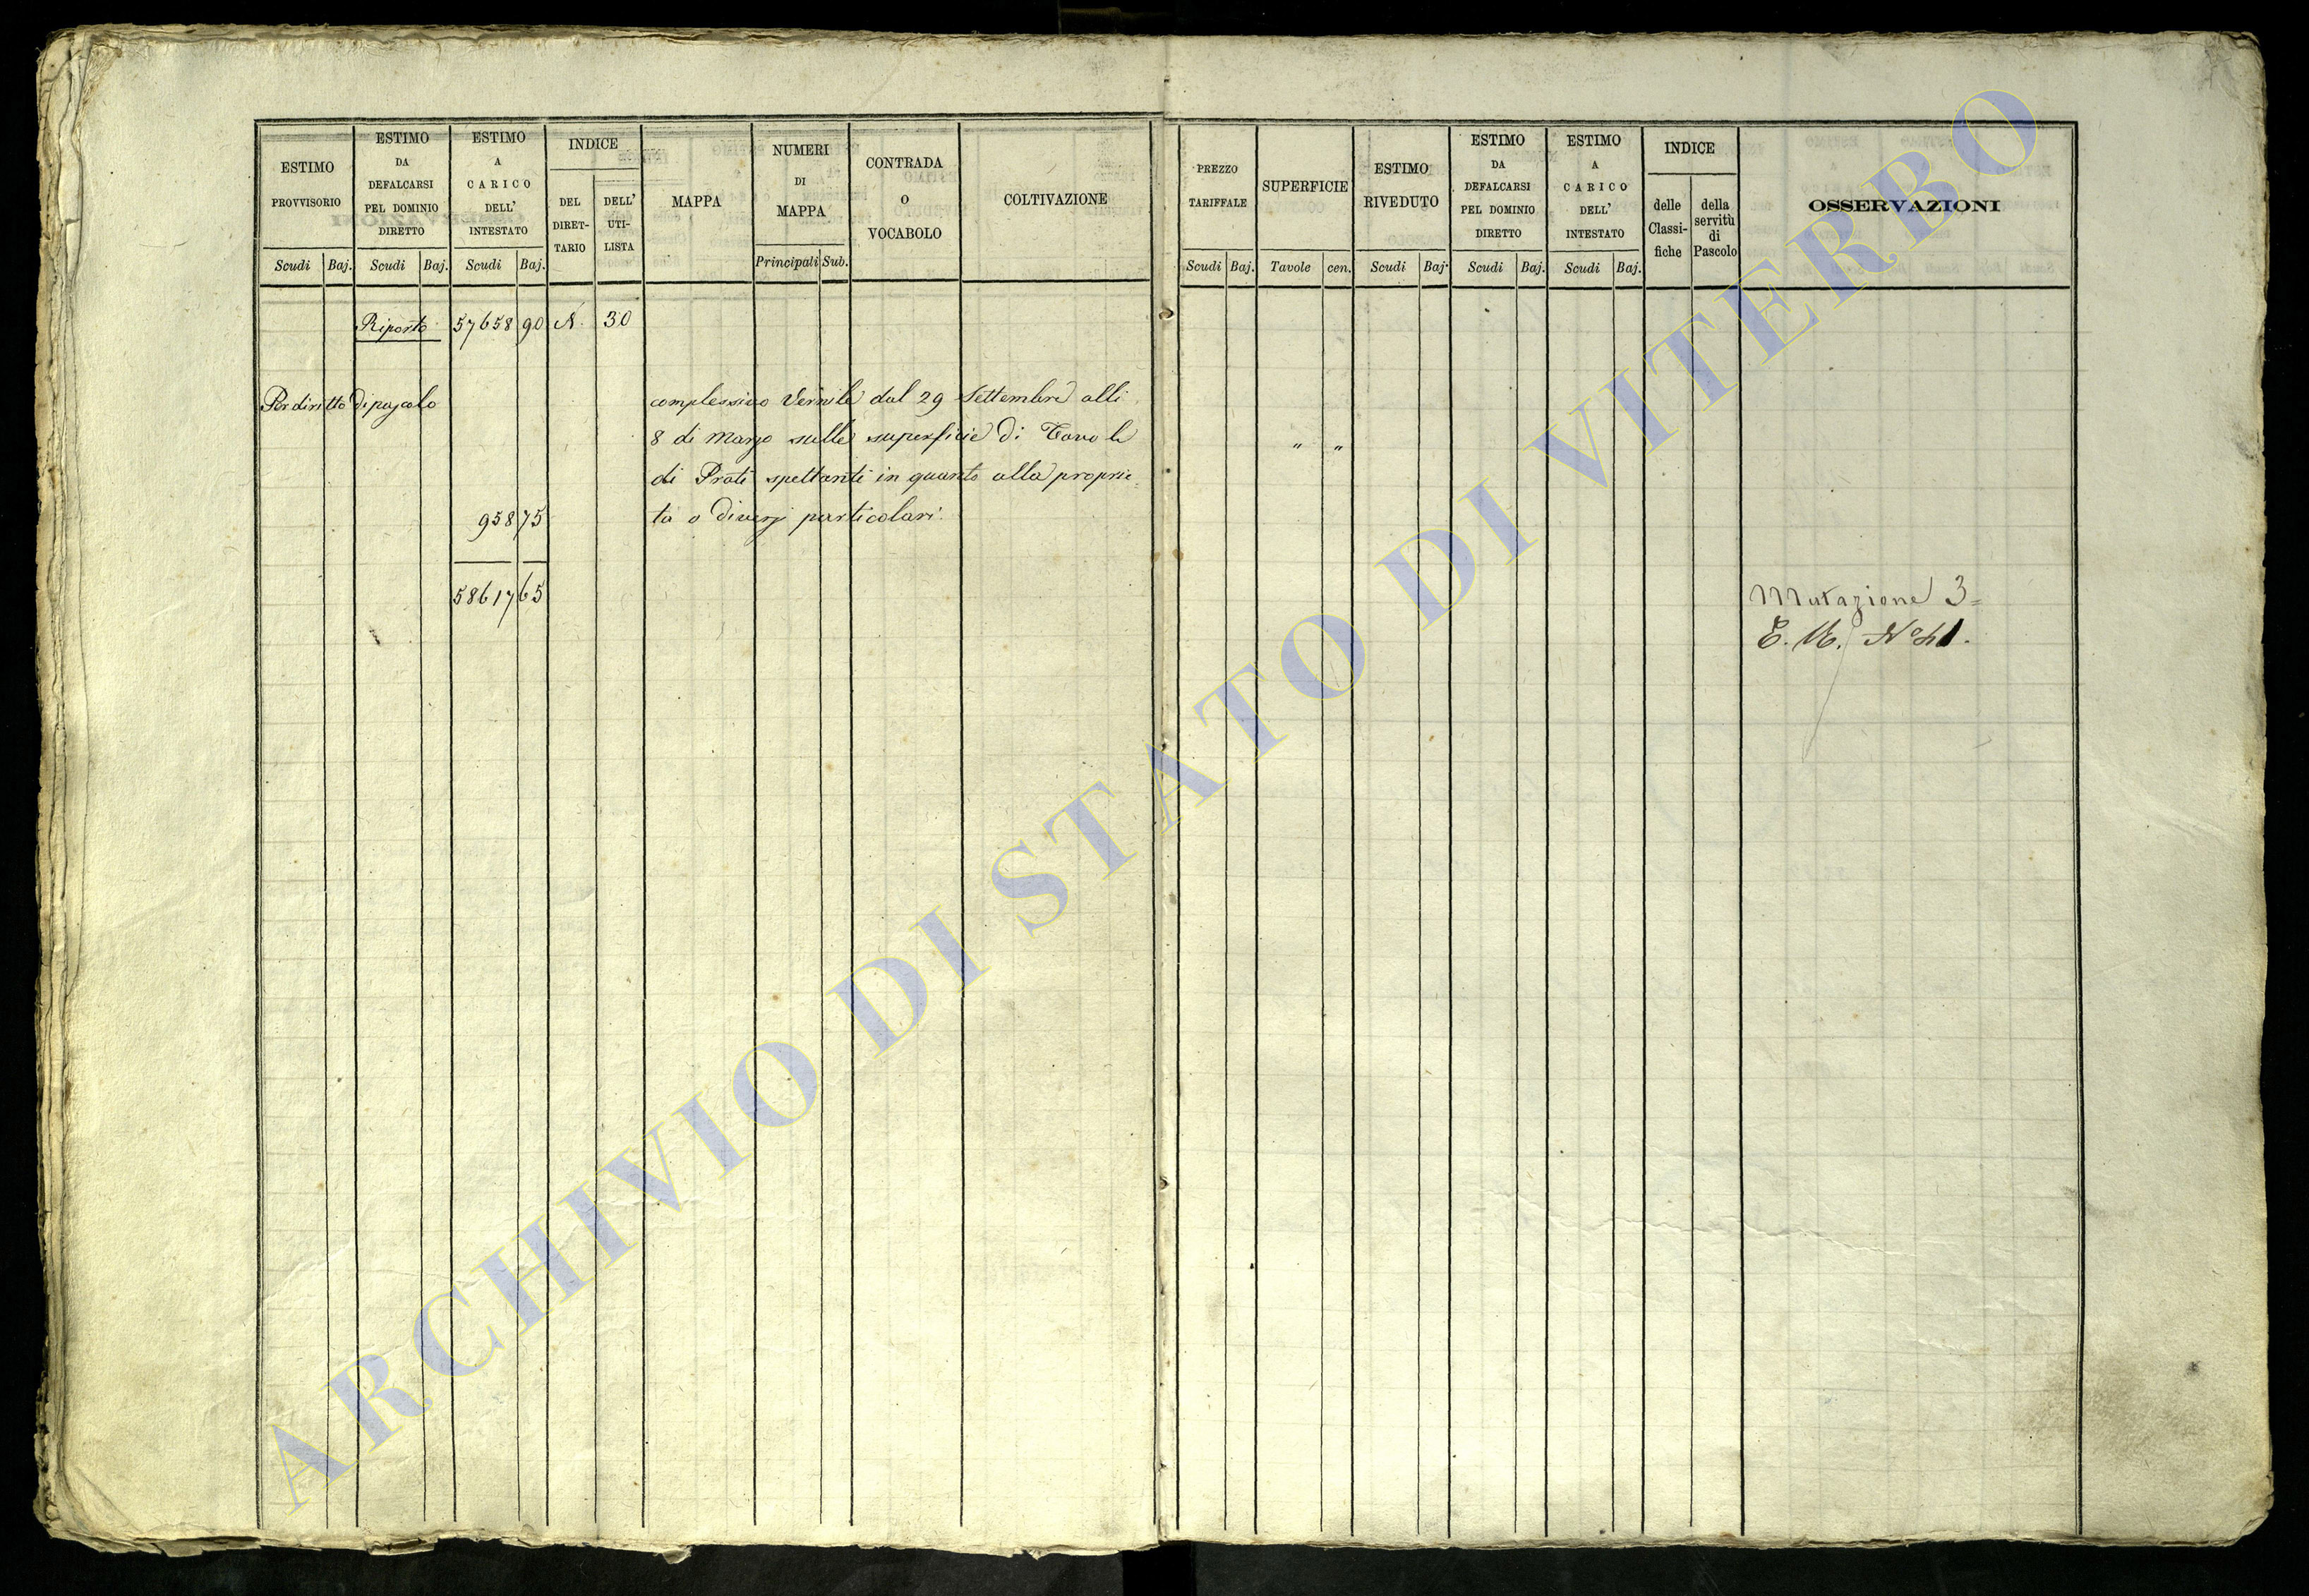 ESTIMO PROVVISORIO
Scudi Baj.
ESTIMO DA DEFALCARSI PEL DOMINIO DIRETTO
Scudi Baj.
ESTIMO A CARICO DELL' INTESTATO
Scudi Baj.
INDICE
DEL DIRET-TARIO
DELL' UTI-LISTA
MAPPA
NUMERI DI MAPPA
Principali Sub.
CONTRADA O VOCABOLO
COLTIVAZIONE
PREZZO TARIFFALE
Scudi Baj.
SUPERFICIE
Tavole cen.
ESTIMO RIVEDUTO
Scudi Baj.
ESTIMO DA DEFALCARSI PEL DOMINIO DIRETTO
Scudi Baj.
ESTIMO A CARICO DELL' INTESTATO
Scudi Baj.
INDICE
delle Classi-fiche
della servitù di Pascolo
OSSERVAZIONI
Riporto 57658 90 N. 30
Per diritto di pascolo complessivo Vernile dal 29 Settembre alli
8 di Marzo sulle superficie di Tavole " "
di Prati spettanti in quanto alla proprie=
958 75 ta a diversi particolari.
58617 65
Mutazione 3=
E. U. N° 41.
ARCHIVIO DI STATO DI VITERBO